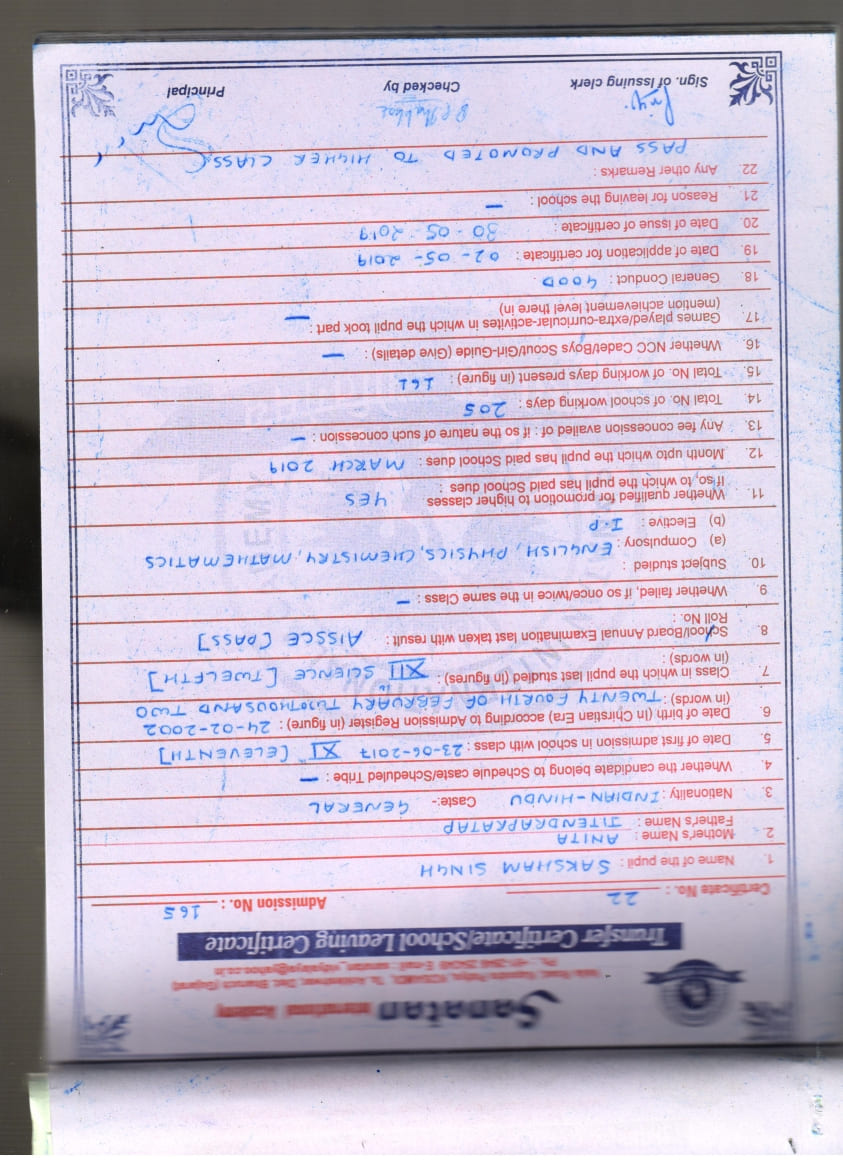 Sanatan International Academy
Valia Road, Kapodra Patiya, KOSAMDI, Ta. Ankleshwar, Dist. Bharuch (Gujarat)
E-mail : sanatan_vidyalaya@yahoo.co.in
Transfer Certificate/School Leaving Certificate
Certificate No. : 22 Admission No. : 165
1. Name of the pupil : SAKSHAM SINGH
2. Mother's Name : ANITA
Father's Name : JITENDRAPRATAP
3. Nationality : INDIAN-HINDU Caste:- GENERAL
4. Whether the candidate belong to Schedule caste/Scheduled Tribe : —
5. Date of first admission in school with class : 23-06-2017 XIth [ELEVENTH]
6. Date of birth (In Christian Era) according to Admission Register (in figure) : 24-02-2002
(in words) : TWENTY FOURTH OF FEBRUARY TWOTHOUSAND TWO
7. Class in which the pupil last studied (in figures) : XIIth SCIENCE [TWELFTH]
(in words) :
8. School/Board Annual Examination last taken with result : AISSCE [PASS]
Roll No. :
9. Whether failed, if so once/twice in the same Class : —
10. Subject studied :
(a) Compulsory : ENGLISH, PHYSICS, CHEMISTRY, MATHEMATICS
(b) Elective : I.P
11. Whether qualified for promotion to higher classes YES
If so, to which the pupil has paid School dues :
12. Month upto which the pupil has paid School dues : MARCH 2019
13. Any fee concession availed of : if so the nature of such concession : —
14. Total No. of school working days : 205
15. Total No. of working days present (in figure) : 161
16. Whether NCC Cadet/Boys Scout/Girl-Guide (Give details) : —
17. Games played/extra-curricular-activites in which the pupil took part : —
(mention achievement level there in)
18. General Conduct : GOOD
19. Date of application for certificate : 02-05-2019
20. Date of issue of certificate : 30-05-2019
21. Reason for leaving the school : —
22. Any other Remarks :
PASS AND PROMOTED TO HIGHER CLASS
Sign. of Issuing clerk Checked by Principal